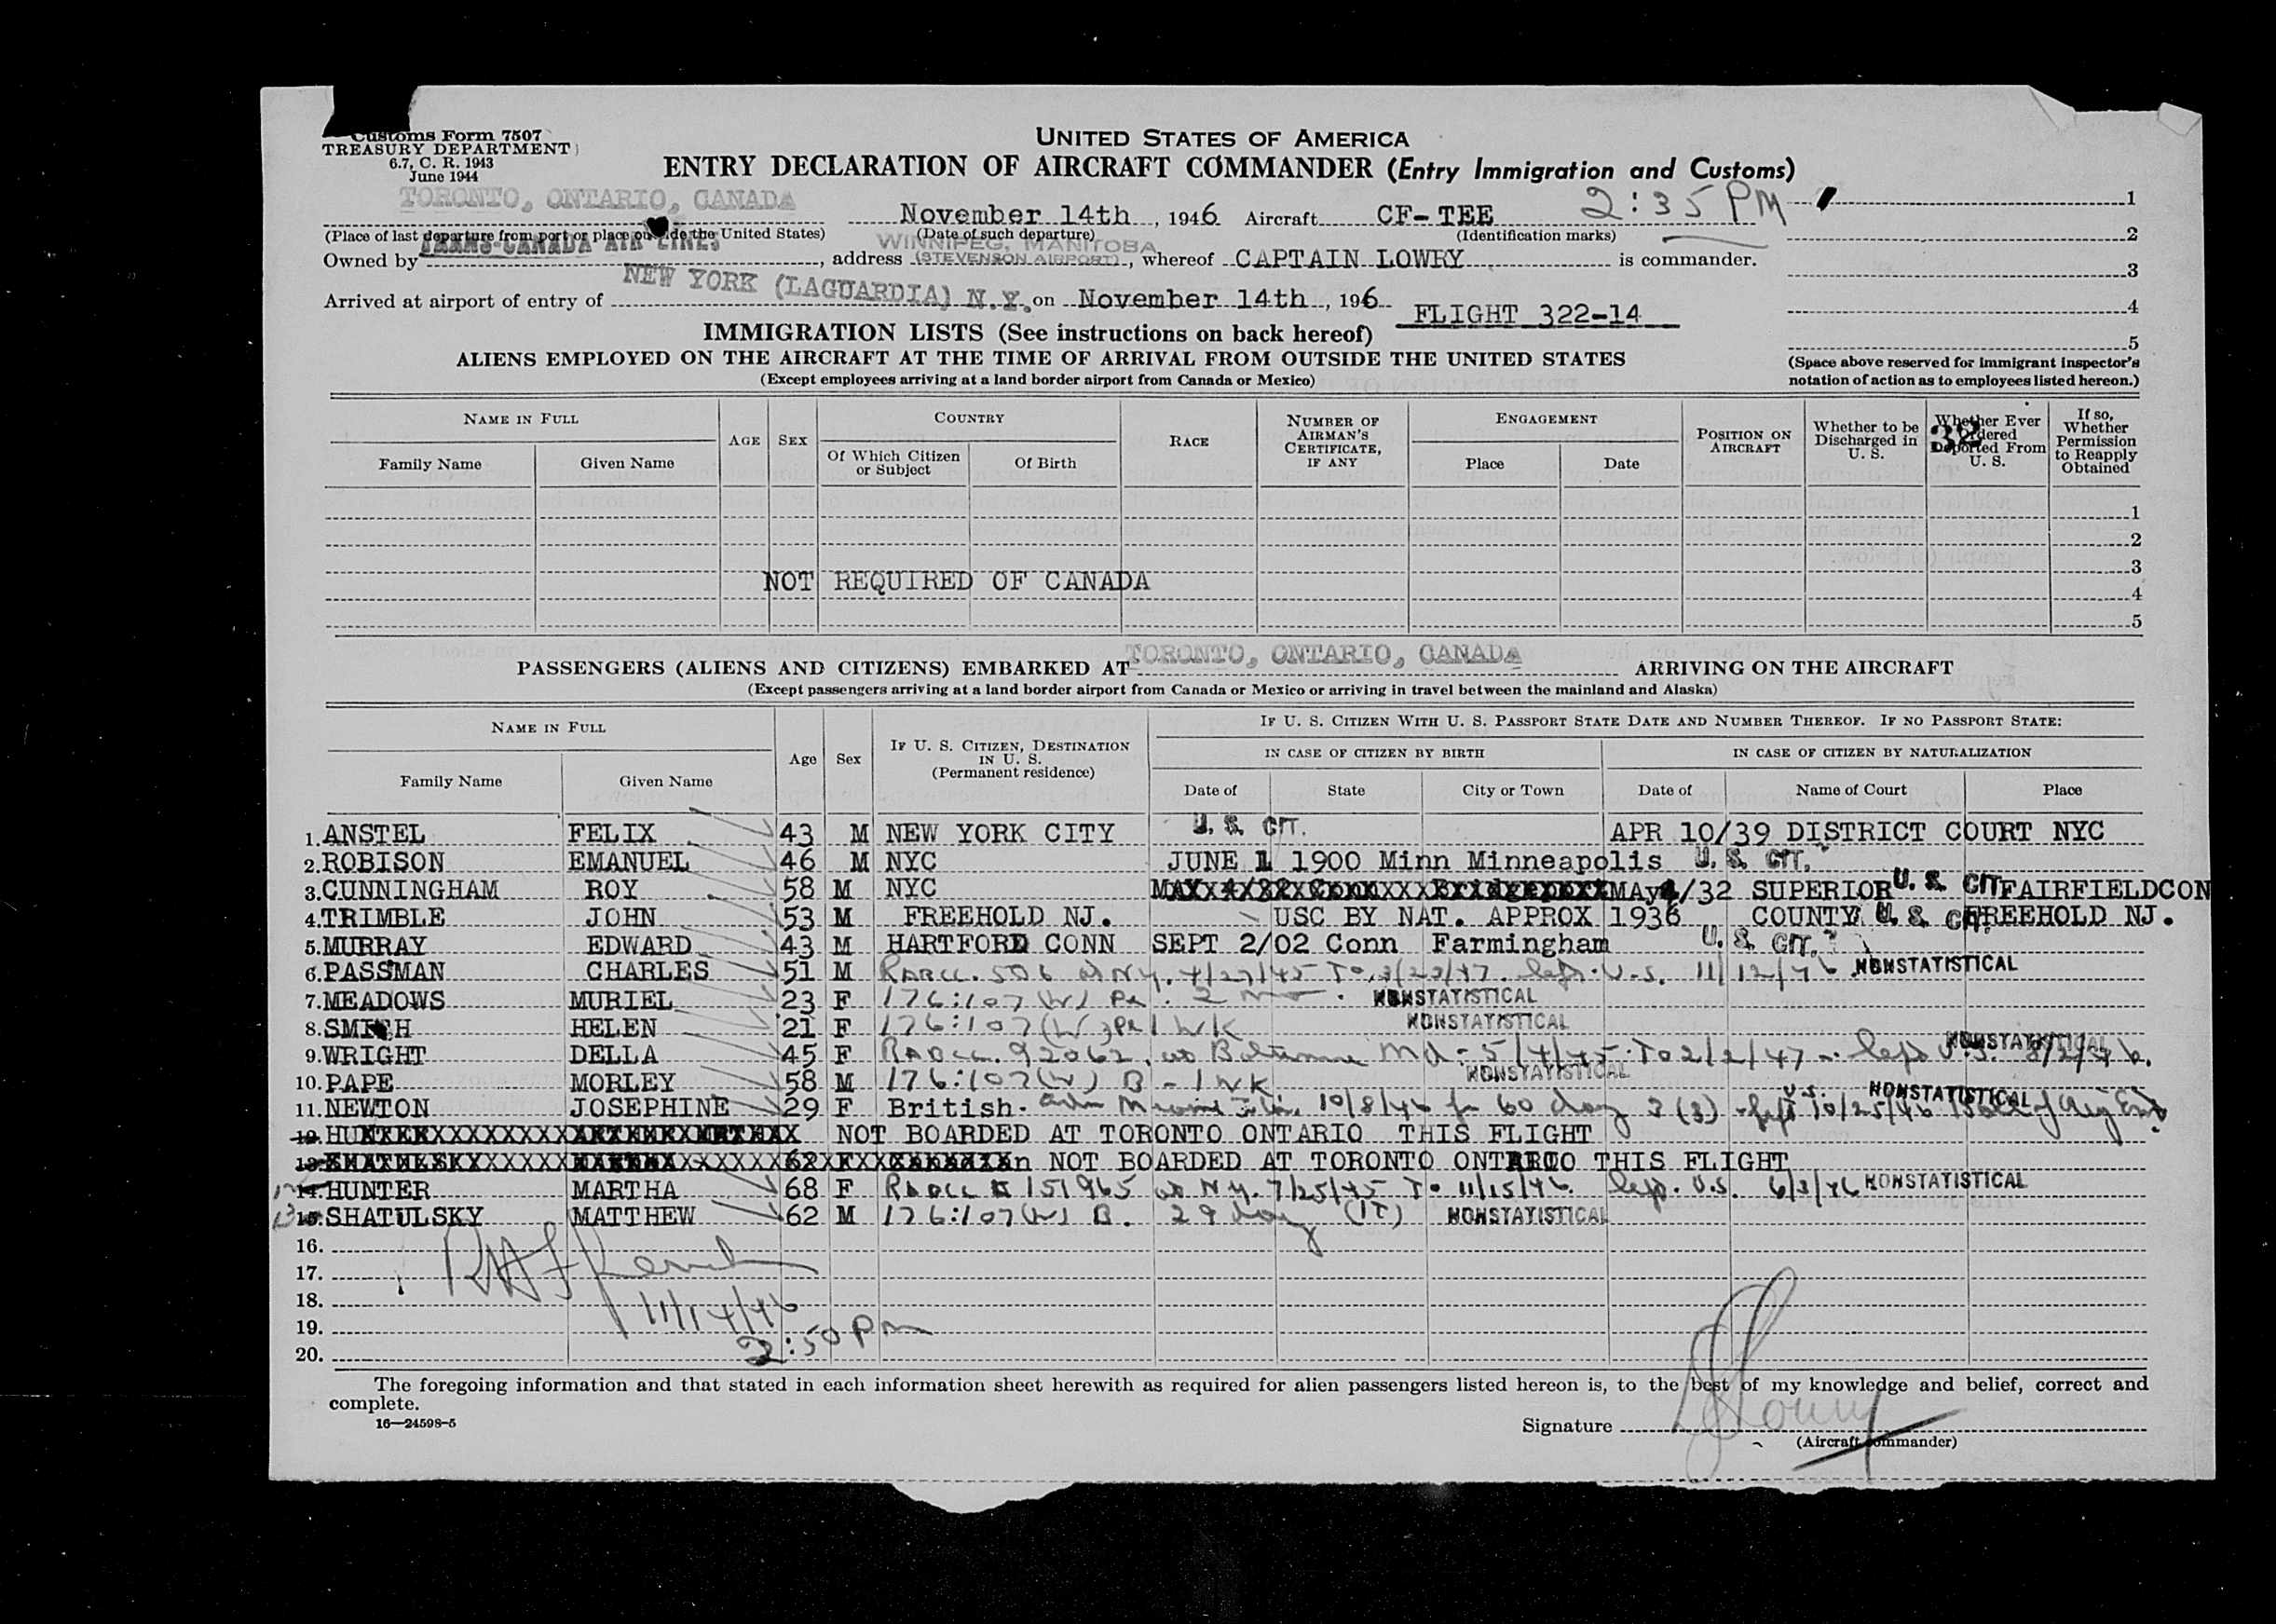 Customs Form 7507
TREASURY DEPARTMENT
6.7, C. R. 1943
June 1944
UNITED STATES OF AMERICA
ENTRY DECLARATION OF AIRCRAFT COMMANDER (Entry Immigration and Customs)
TORONTO, ONTARIO, CANADA November 14th, 1946 Aircraft CF-TEE 2:35 PM 1
(Place of last departure from port or place outside the United States) (Date of such departure) (Identification marks) 2
Owned by TRANS-CANADA AIR LINES, address WINNIPEG, MANITOBA (STEVENSON AIRPORT), whereof CAPTAIN LOWRY is commander. 3
Arrived at airport of entry of NEW YORK (LAGUARDIA) N.Y. on November 14th, 196 4
FLIGHT 322-14
IMMIGRATION LISTS (See instructions on back hereof) 5
ALIENS EMPLOYED ON THE AIRCRAFT AT THE TIME OF ARRIVAL FROM OUTSIDE THE UNITED STATES
(Except employees arriving at a land border airport from Canada or Mexico)
(Space above reserved for immigrant inspector's
notation of action as to employees listed hereon.)
NAME IN FULL
Family Name Given Name
AGE SEX
COUNTRY
Of Which Citizen or Subject Of Birth
RACE
NUMBER OF AIRMAN'S CERTIFICATE, IF ANY
ENGAGEMENT
Place Date
POSITION ON AIRCRAFT
Whether to be Discharged in U. S.
Whether Ever Ordered Deported From U. S.
32
If so, Whether Permission to Reapply Obtained
1
2
3
NOT REQUIRED OF CANADA
4
5
PASSENGERS (ALIENS AND CITIZENS) EMBARKED AT TORONTO, ONTARIO, CANADA ARRIVING ON THE AIRCRAFT
(Except passengers arriving at a land border airport from Canada or Mexico or arriving in travel between the mainland and Alaska)
NAME IN FULL
Family Name Given Name
Age Sex
IF U. S. CITIZEN, DESTINATION IN U. S. (Permanent residence)
IF U. S. CITIZEN WITH U. S. PASSPORT STATE DATE AND NUMBER THEREOF. IF NO PASSPORT STATE:
IN CASE OF CITIZEN BY BIRTH IN CASE OF CITIZEN BY NATURALIZATION
Date of State City or Town Date of Name of Court Place
1. ANSTEL FELIX 43 M NEW YORK CITY U. S. CIT. APR 10/39 DISTRICT COURT NYC
2. ROBISON EMANUEL 46 M NYC JUNE 1 1900 Minn Minneapolis U. S. CIT.
3. CUNNINGHAM ROY 58 M NYC MAy4/32 SUPERIOR U. S. CIT FAIRFIELDCON
4. TRIMBLE JOHN 53 M FREEHOLD NJ. USC BY NAT. APPROX 1936 COUNTY U. S. CIT. FREEHOLD NJ.
5. MURRAY EDWARD 43 M HARTFORD CONN SEPT 2/02 Conn Farmingham U. S. CIT.
6. PASSMAN CHARLES 51 M 506 at N.Y. 4/27/45 To 3/23/47 left U.S. 11/12/46 NONSTATISTICAL
7. MEADOWS MURIEL 23 F 176:107 (W) 2 NONSTATISTICAL
8. SMITH HELEN 21 F 176:107 (W) 1 WK NONSTATISTICAL
9. WRIGHT DELLA 45 F 92062 at Baltimore Md - 5/4/45 To 2/2/47 left U.S. NONSTATISTICAL
10. PAPE MORLEY 58 M 176:107 (W) B - 1 WK NONSTATISTICAL
11. NEWTON JOSEPHINE 29 F British. 10/8/46 for 60 day 3 (3) left U.S. 10/25/46 NONSTATISTICAL
12. NOT BOARDED AT TORONTO ONTARIO THIS FLIGHT
13. NOT BOARDED AT TORONTO ONTARIO THIS FLIGHT
14. HUNTER MARTHA 68 F 151965 at N.Y. 7/25/45 To 11/15/46. U.S. 6/3/46 NONSTATISTICAL
15. SHATULSKY MATTHEW 62 M 176:107 (W) B. 29 day NONSTATISTICAL
16.
17.
18. 11/14/46
19. 2:50 Pm
20.
The foregoing information and that stated in each information sheet herewith as required for alien passengers listed hereon is, to the best of my knowledge and belief, correct and
complete.
16—24598-5
Signature
(Aircraft commander)